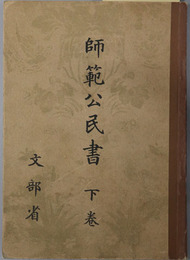 師範公民書 下卷
文部省